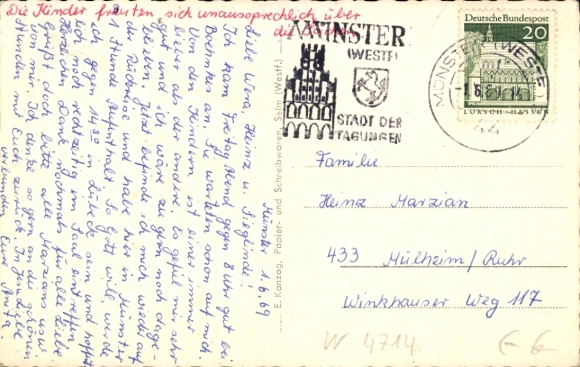 Die Kinder freuten sich unaussprechlich über
die Sachen.
Münster 1.6.69
Liebe Wera, Heinz u. Sieglinde!
Ich kam Freitag Abend gegen 8 Uhr gut bei
an. Sie warteten schon auf mich.
Von den Kindern ist einer immer
lieber als der andere. Es gefiel mir sehr
gut und ich wäre zu gern noch dage-
blieben. Jetzt befinde ich mich wieder auf
der Rückreise und habe hier in Münster
1 Stunde Aufenthalt. So Gott will werde
ich gegen 14.30 in Lübeck sein und hoffent-
lich noch rechtzeitig im Saal eintreffen.
Herzlichen Dank nochmals für alle Liebe
Grüßt doch bitte alle Marzians usw.
von mir. Ich denke so gern an die schönen
Stunden mit Euch zurück. In Liebe
verbunden Eure Anita
E. Kanzog, Papier- und Schreibwaren, Selm (Westf.)
MÜNSTER
(WESTF)
STADT DER
TAGUNGEN
MÜNSTER (WESTF)
-1.6.69-14
44
Deutsche Bundespost
20
LORSCH · HESSEN
Familie
Heinz Marzian
433 Mülheim/Ruhr
Winkhauser Weg 117
W 4714